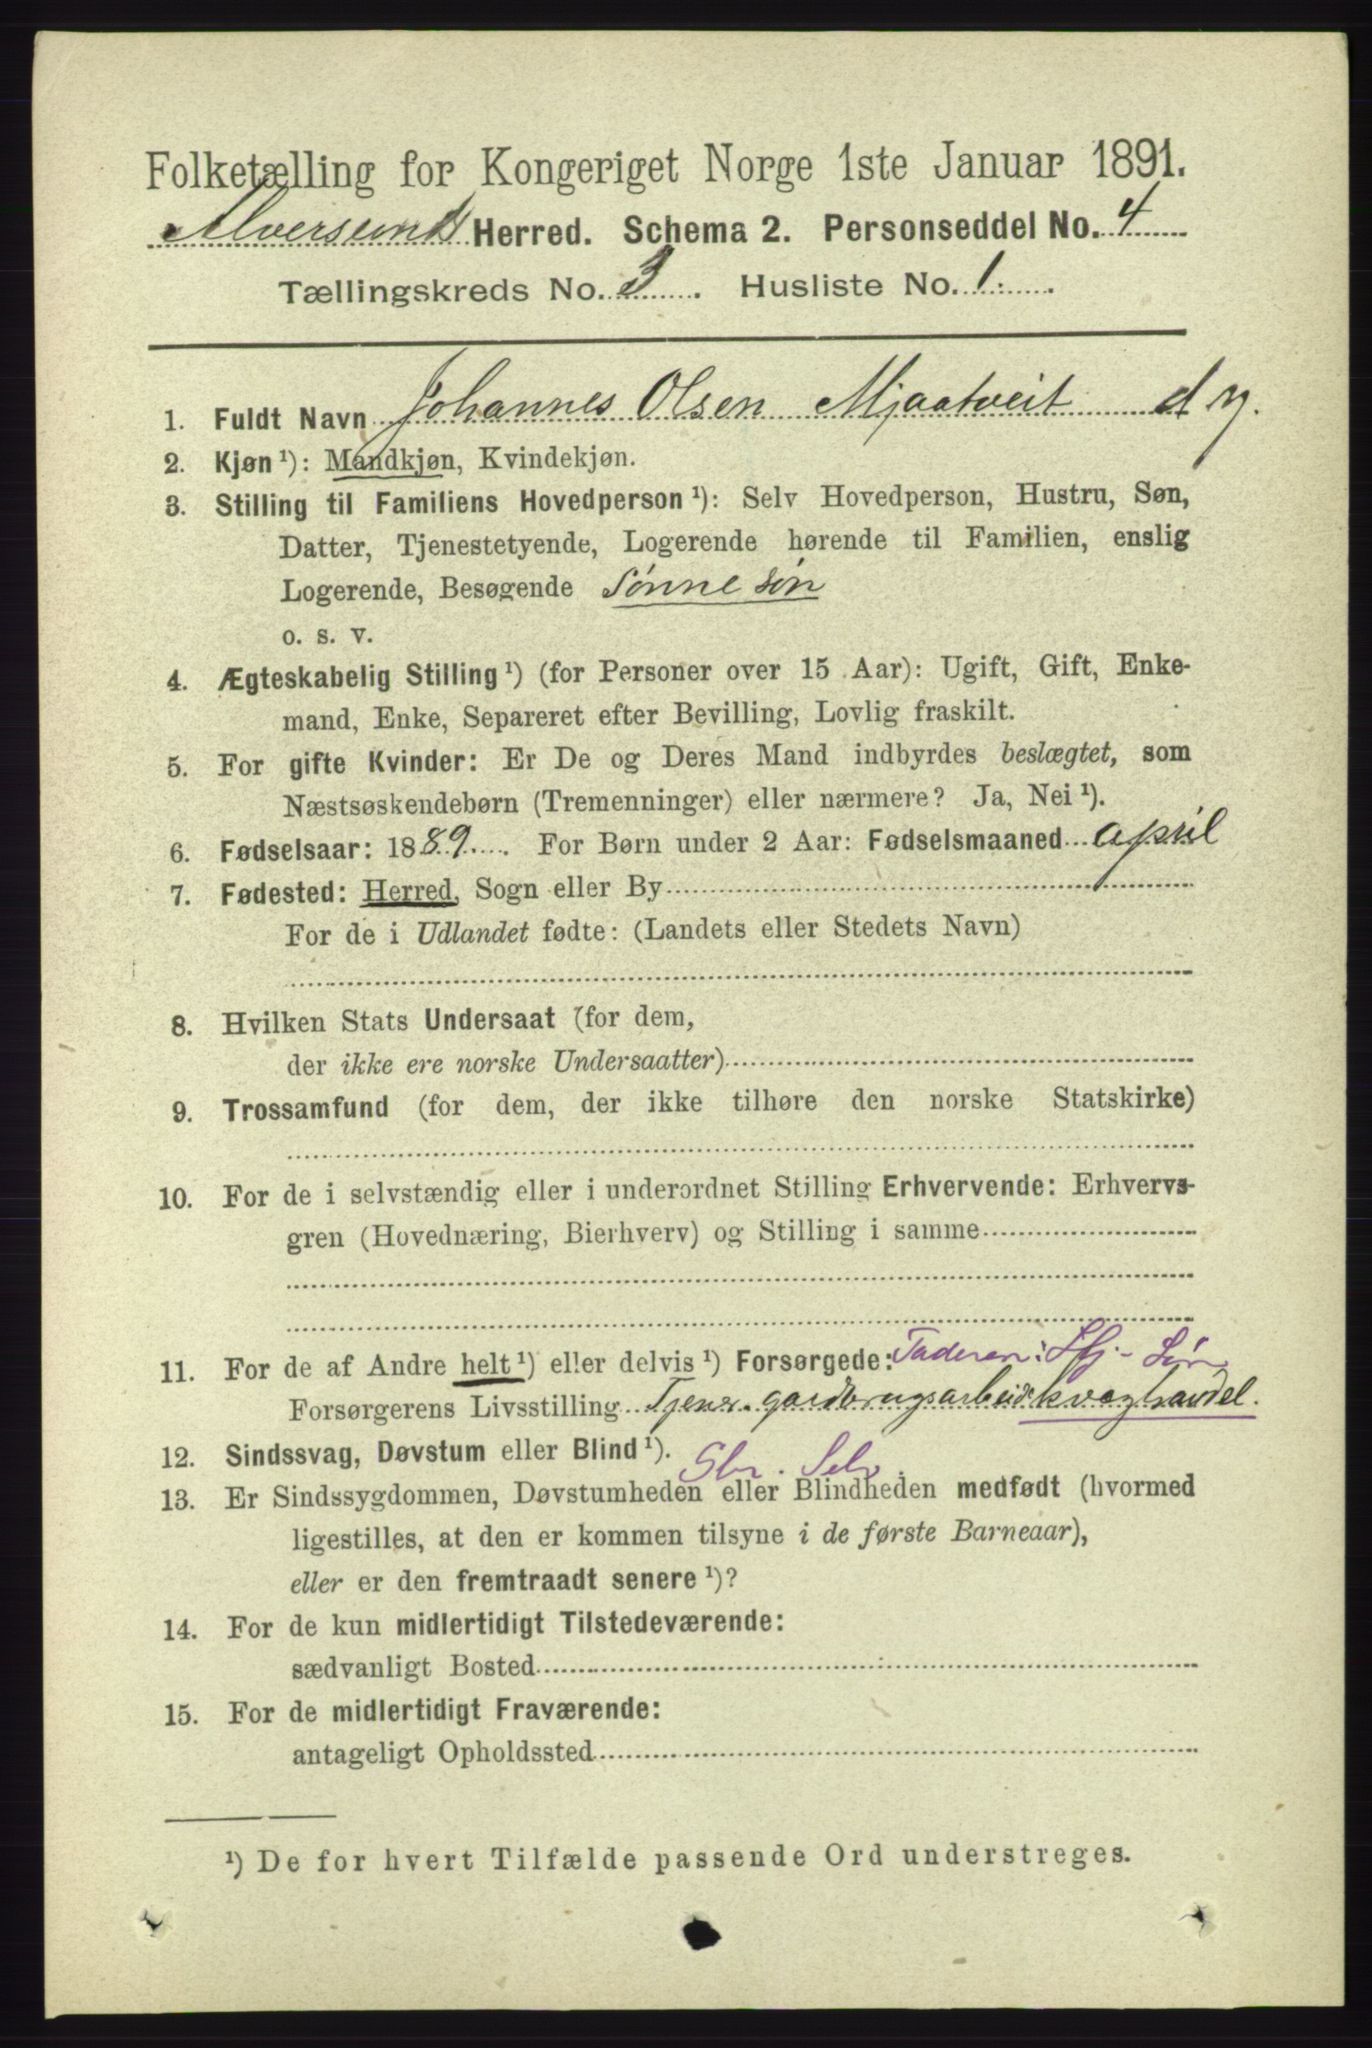 Folketælling for Kongeriget Norge 1ste Januar 1891.
Alversunds Herred. Schema 2. Personseddel No. 4
Tællingskreds No. 3. Husliste No. 1.
1. Fuldt Navn Johannes Olsen Mjaatveit d y.
2. Kjøn ¹): Mandkjøn, Kvindekjøn.
3. Stilling til Familiens Hovedperson ¹): Selv Hovedperson, Hustru, Søn,
Datter, Tjenestetyende, Logerende hørende til Familien, enslig
Logerende, Besøgende Sønne søn
o. s. v.
4. Ægteskabelig Stilling ¹) (for Personer over 15 Aar): Ugift, Gift, Enke-
mand, Enke, Separeret efter Bevilling, Lovlig fraskilt.
5. For gifte Kvinder: Er De og Deres Mand indbyrdes beslægtet, som
Næstsøskendebørn (Tremenninger) eller nærmere? Ja, Nei ¹).
6. Fødselsaar: 1889. For Børn under 2 Aar: Fødselsmaaned april
7. Fødested: Herred, Sogn eller By
For de i Udlandet fødte: (Landets eller Stedets Navn)
8. Hvilken Stats Undersaat (for dem,
der ikke ere norske Undersaatter)
9. Trossamfund (for dem, der ikke tilhøre den norske Statskirke)
10. For de i selvstændig eller i underordnet Stilling Erhvervende: Erhvervs-
gren (Hovednæring, Bierhverv) og Stilling i samme
11. For de af Andre helt ¹) eller delvis ¹) Forsørgede: Faderen: Hj - Søn
Forsørgerens Livsstilling Tjener. gardbrugsarbeide kvæghandel.
12. Sindssvag, Døvstum eller Blind ¹).
Sbr. Selv.
13. Er Sindssygdommen, Døvstumheden eller Blindheden medfødt (hvormed
ligestilles, at den er kommen tilsyne i de første Barneaar),
eller er den fremtraadt senere ¹)?
14. For de kun midlertidigt Tilstedeværende:
sædvanligt Bosted
15. For de midlertidigt Fraværende:
antageligt Opholdssted
¹) De for hvert Tilfælde passende Ord understreges.